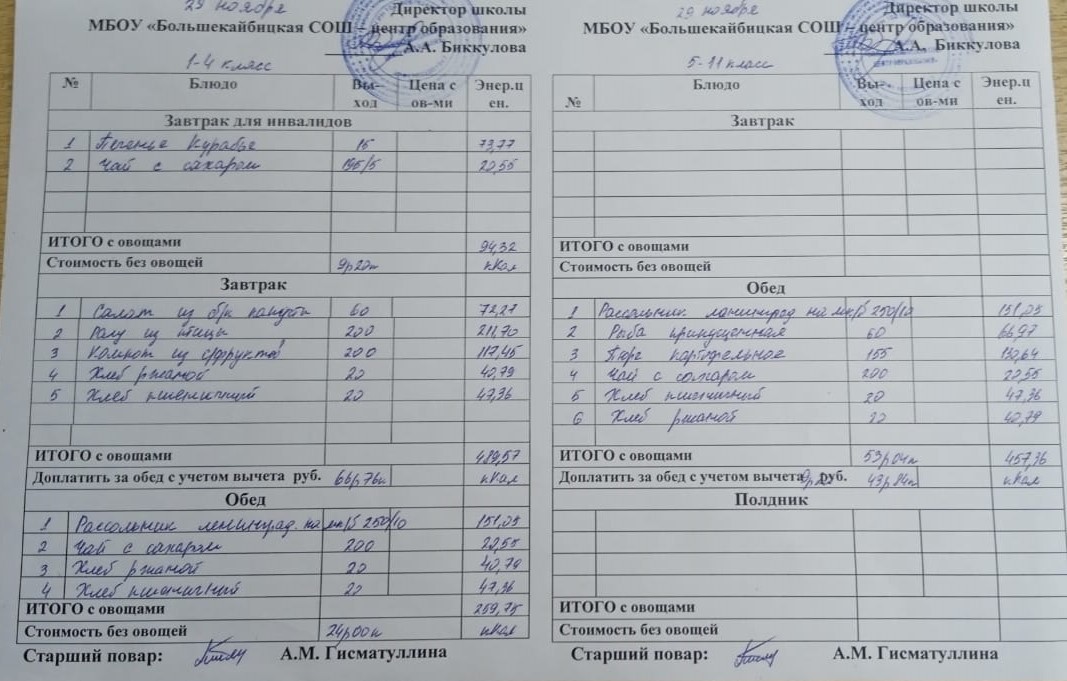 29 ноября
Директор школы
МБОУ «Большекайбицкая СОШ – центр образования»
А.А. Биккулова
1-4 класс
№ Блюдо Вы-ход Цена с ов-ми Энер.цен.
Завтрак для инвалидов
1 Печенье Курабье 15 73,77
2 Чай с сахаром 195/5 20,55
ИТОГО с овощами 94,32
Стоимость без овощей 9р20к кКал
Завтрак
1 Салат из б/к капусты 60 72,27
2 Рагу из птицы 200 211,70
3 Компот из с/фруктов 200 117,45
4 Хлеб ржаной 20 40,79
5 Хлеб пшеничный 20 47,36
ИТОГО с овощами 489,57
Доплатить за обед с учетом вычета руб. 66р76к кКал
Обед
1 Рассольник ленинград. на мк/б 250/10 151,05
2 Чай с сахаром 200 20,55
3 Хлеб ржаной 20 40,79
4 Хлеб пшеничный 20 47,36
ИТОГО с овощами 259,75
Стоимость без овощей 24р00к кКал
Старший повар: А.М. Гисматуллина
29 ноября
Директор школы
МБОУ «Большекайбицкая СОШ – центр образования»
А.А. Биккулова
5-11 класс
№ Блюдо Вы-ход Цена с ов-ми Энер.цен.
Завтрак
ИТОГО с овощами
Стоимость без овощей
Обед
1 Рассольник ленинград на мк/б 250/10 151,05
2 Рыба припущенная 60 66,97
3 Пюре картофельное 155 130,64
4 Чай с сахаром 200 20,55
5 Хлеб пшеничный 20 47,36
6 Хлеб ржаной 20 40,79
ИТОГО с овощами 53р04к 457,36
Доплатить за обед с учетом вычета руб. 43р84к кКал
Полдник
ИТОГО с овощами
Стоимость без овощей
Старший повар: А.М. Гисматуллина